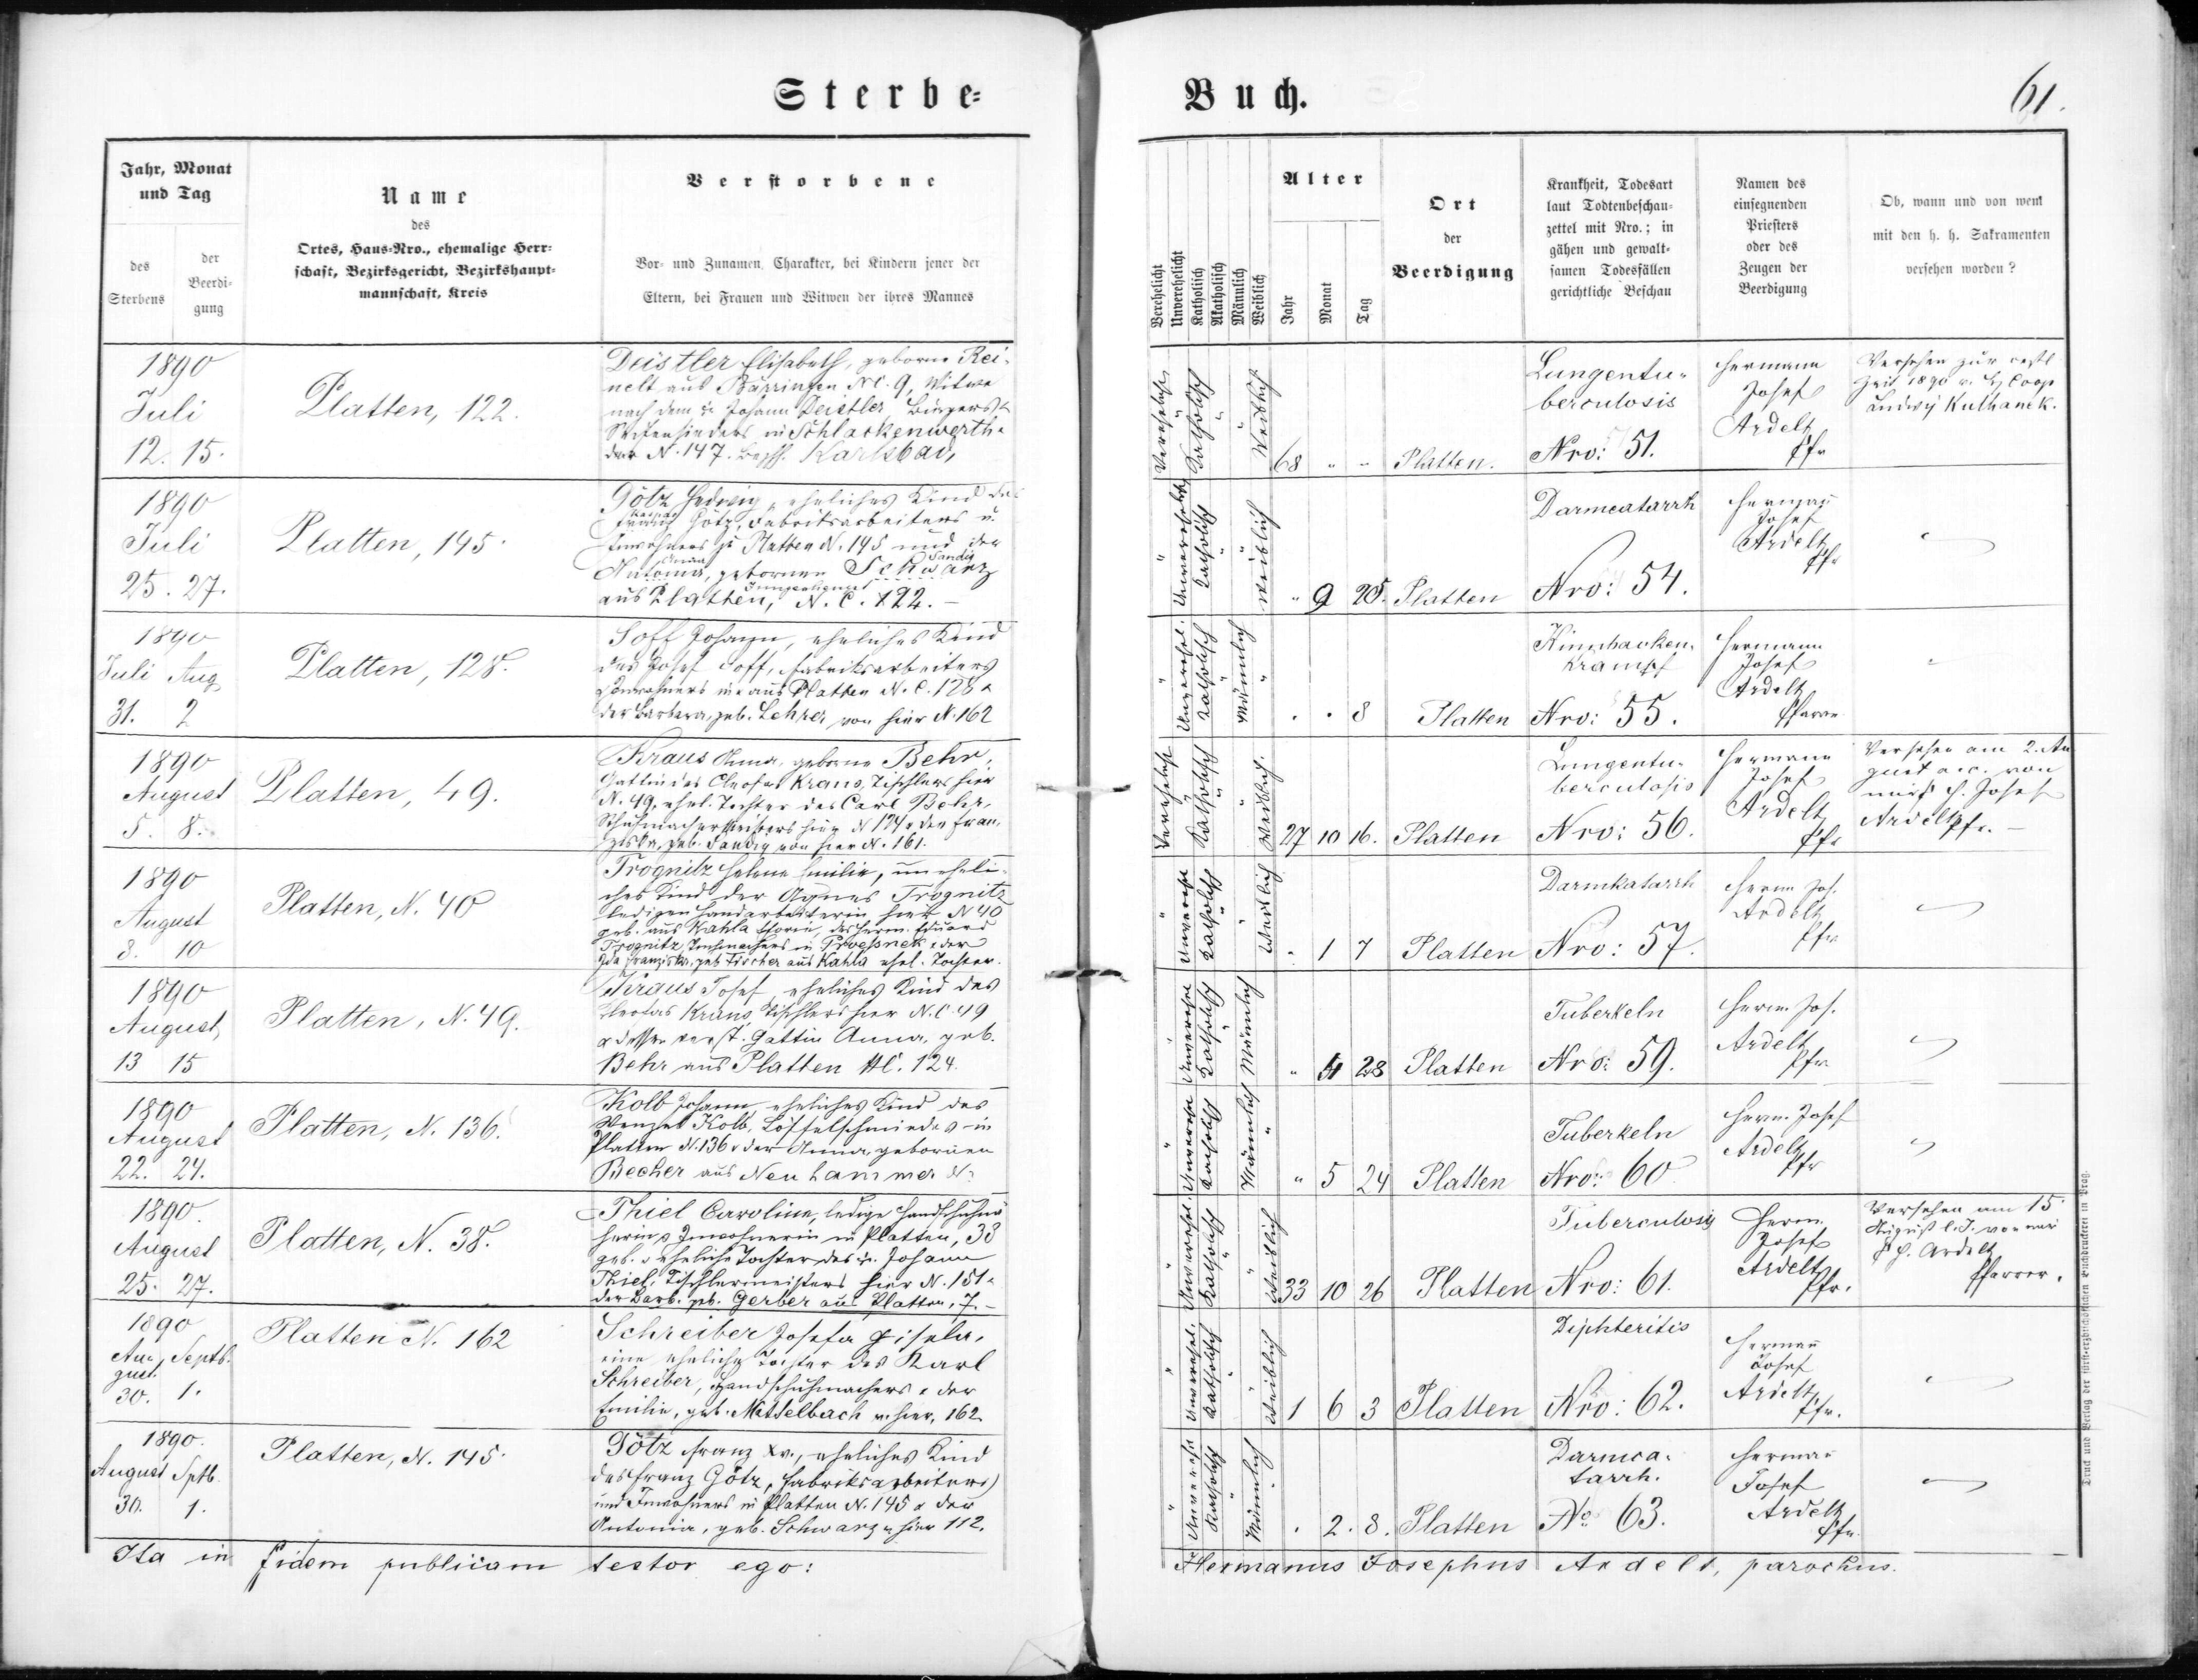 Sterbe-
Buch.
61.
Jahr, Monat
und Tag
des
Sterbens
der
Beerdi-
gung
Name
des
Ortes, Haus-Nro., ehemalige Herr-
schaft, Bezirksgericht, Bezirkshaupt-
mannschaft, Kreis
Verstorbene
Vor- und Zunamen, Charakter, bei Kindern jener der
Eltern, bei Frauen und Witwen der ihres Mannes
Verehelicht
Unverehelicht
Katholisch
Akatholisch
Männlich
Weiblich
Alter
Jahr
Monat
Tag
Ort
der
Beerdigung
Krankheit, Todesart
laut Todtenbeschau-
zettel mit Nro.; in
gähen und gewalt-
samen Todesfällen
gerichtliche Beschau
Namen des
einsegnenden
Priesters
oder des
Zeugen der
Beerdigung
Ob, wann und von wem
mit den h. h. Sakramenten
versehen worden?
1890
Juli
12. 15.
Platten, 122.
Deistler Elisabeth, geborne Rei-
nelt aus Bärringen NC. 9, Witwe
nach dem Johann Deistler, Bürgers
Seifensieders in Schlackenwerth
N. 147. Karlsbad,
Verehelicht
Katholisch
Weiblich
68 " " Platten.
Lungentu-
berculosis
Nro: 51.
Hermann
Josef
Ardelt
Pfr
Versehen zur
Zeit 1890 Coop.
Ludwig Kulhanek.
1890
Juli
25. 27.
Platten, 145.
Götz Hedwig, eheliches Kind des
Franz Götz, Fabriksarbeiters u.
Inwohners zu Platten N. 145 und der
Anna Sandig
Antonia, gebornen Schwarz
aus Platten, N. C. 122.
Unverehelicht
Katholisch
Weiblich
" 9 25. Platten
Darmcatarrh
Nro: 54.
Hermann
Josef
Ardelt
Pfr
1890
Juli Aug
31. 2
Platten, 128.
Soff Johann, eheliches Kind
des Josef Soff, Fabriksarbeiters
Inwohners in u aus Platten N. C. 128 u
der Barbara, geb. Lehrer von hier N. 162
Unverehel.
Katholisch
Männlich
" " 8 Platten
Kinnbacken-
krampf
Nro: 55.
Hermann
Josef
Ardelt
Pfarrer
1890
August
5. 8.
Platten, 49.
Kraus Anna, geborne Behr,
Gattin des Cleofas Kraus, Tischlers hier
N. 49, ehel. Tochter des Carl Behr,
Schuhmachermeisters hier N 124 u der Fran-
ziska, geb. Sandig von hier N. 161.
Verehelicht
Katholisch
Weiblich.
27 10 16. Platten
Lungentu-
berculosis
Nro: 56.
Hermann
Josef
Ardelt
Pfr
Versehen am 2. Au
gust a. c. von
mir H. Josef
Ardelt Pfr.
1890
August
8. 10
Platten, N. 40
Trognitz Helene Emilie, uneheli-
ches Kind der Agnes Trognitz
ledigen Handarbeiterin hier N 40
geb. aus Kahla, des Herrn Eduard
Trognitz, Tuchmachers in Proessnek u der
Ida Franziska, geb. Fischer aus Kahla ehel. Tochter.
Unverehe
Katholisch
Weiblich
" 1 7 Platten
Darmkatarrh
Nro: 57.
Herm. Jos.
Ardelt
Pfr
1890
August,
13 15
Platten, N. 49.
Kraus Josef, eheliches Kind des
Cleofas Kraus, Tischlers hier N. C. 49
u dessen verst. Gattin Anna, geb.
Behr aus Platten NC. 124.
Unverehe
Katholisch
Männlich
" 4 28 Platten
Tuberkeln
Nro: 59.
Herm. Jos.
Ardelt
Pfr.
1890
August
22. 24.
Platten, N. 136.
Kolb Johann, eheliches Kind des
Wenzel Kolb, Löffelschmiedes in
Platten N. 136 u der Anna, gebornen
Becher aus Neuhammer N.
Unverehe
Katholisch
Männlich
" 5 24 Platten
Tuberkeln
Nro: 60
Herm. Josef
Ardelt
Pfr
1890.
August
25. 27.
Platten, N. 38.
Thiel Caroline, ledige Handschuhnä-
herin u Inwohnerin in Platten, 38
geb. u eheliche Tochter des Johann
Thiel, Tischlermeisters hier N. 151 u
der Barb. geb. Gerber aus Platten, 7.
Unverehel.
Katholisch
Weiblich
33 10 26 Platten
Tuberculosis
Nro: 61.
Herm.
Josef
Ardelt
Pfr.
Versehen am 15
August l. J. von mir
H. Ardelt
Pfarrer.
1890
Au- Septb.
gust
30. 1.
Platten N. 162
Schreiber Josefa Gisela,
eine eheliche Tochter des Karl
Schreiber, Handschuhmachers u der
Emilie, geb. Mittelbach v. hier, 162
Unverehel.
Katholisch
Weiblich
1 6 3 Platten
Diphteritis
Nro: 62.
Hermann
Josef
Ardelt
Pfr.
1890.
August Sptb.
30. 1.
Platten, N. 145.
Götz Franz Xv., eheliches Kind
des Franz Götz, Fabriksarbeiters
und Inwohners in Platten N. 145 u der
Antonia, geb. Schwarz v. hier 112.
Unverehe
Katholisch
Männlich
" 2. 8. Platten
Darmca-
tarrh.
No 63.
Hermann
Josef
Ardelt
Pfr.
Ita in fidem publicam testor ego:
Hermanus Josephus Ardelt, parochus.
Druck und Verlag der fürst-erzbischöflichen Buchdruckerei in Prag.